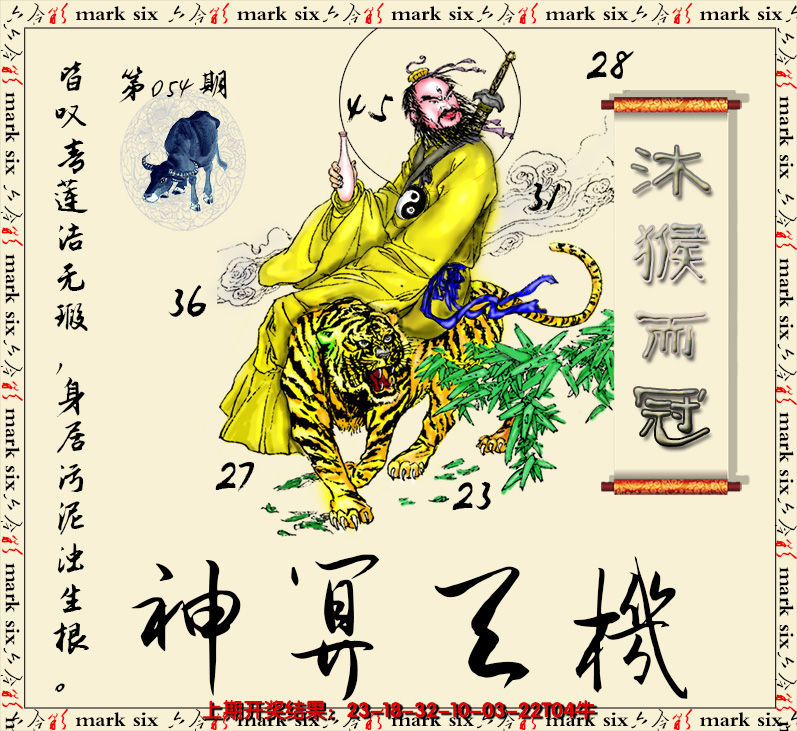 mark six 六合彩 mark six 六合彩 mark six 六合彩 mark six 六合彩 mark six
第054期
皆叹青莲洁无瑕,身居污泥浊生根。
45
28
31
36
27
23
沐猴而冠
神算天機
上期开奖结果:23-18-32-10-03-22T04牛
mark six 六合彩 mark six 六合彩 mark six 六合彩 mark six 六合彩 mark six